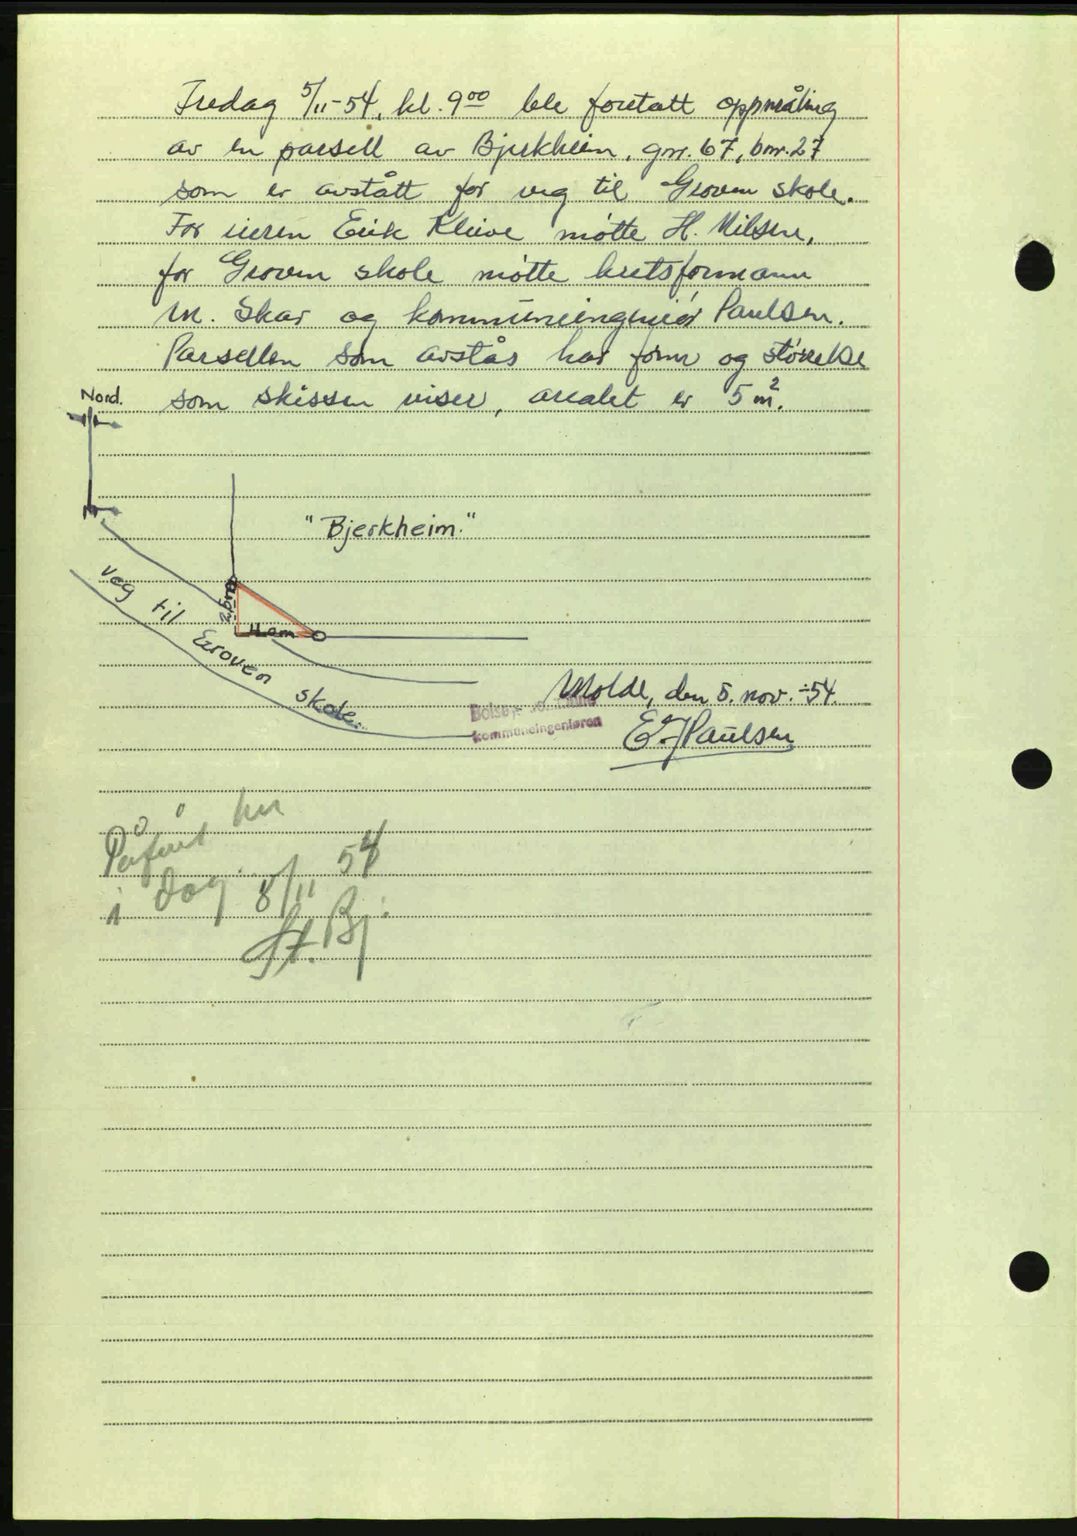 Fredag 5/11-54, kl. 9⁰⁰ ble foretatt oppmåling
av en parsell av Bjerkheim, gnr. 67, bnr. 27
som er avstått for veg til Groven skole.
For eieren Eirik Kleive møtte H. Nilsen,
for Groven skole møtte kretsformann
M. Skar og kommuneingeniør Paulsen.
Parsellen som avstås har form og størrelse
som skissen viser, arealet er 5 m².
Nord.
"Bjerkheim."
veg til Groven skole.
Molde, den 5. nov. -54.
Bolsøy
kommuneingeniøren
E. J. Paulsen
Påført her
i dag 8/11 54
St. Bj.